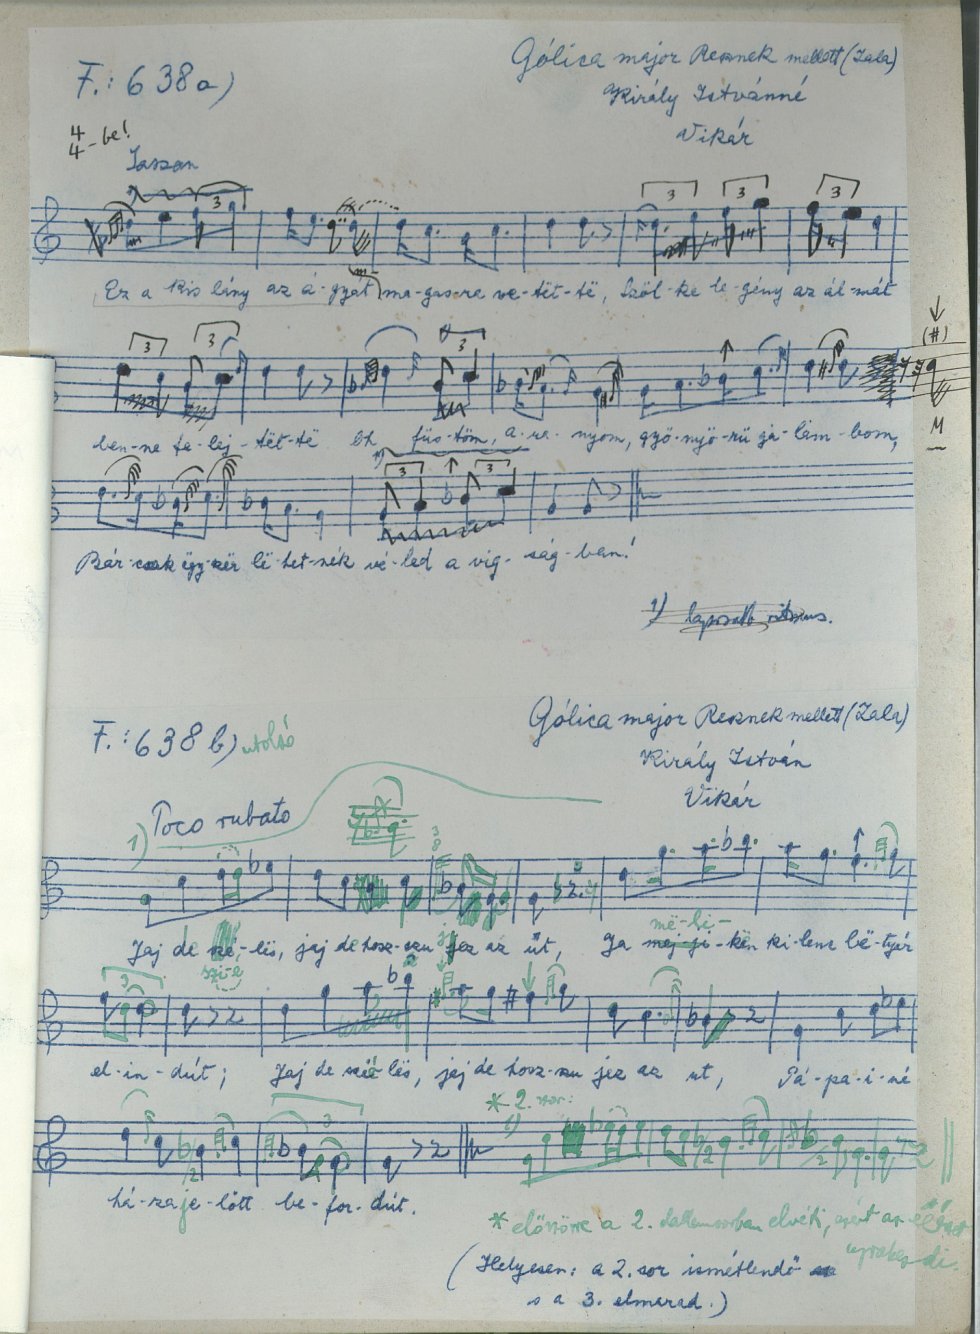 F.: 638a)
Gólica major Reznek mellett (Zala)
Király Istvánné
Vikár
4/4-be!
Lassan
3
3 3 3
Ez a kis lány az á-gyát ma-gas-ra ve-tët-të, Szöl-ke le-gény az ál-mát
3 3 3
(#)
ben-ne fe-lej-tët-të füs-töm, a-ra-nyom, gyö-nyö-rü ga-lam-bom,
M
1) 3 3
Bár-csak ëgy-szër lë-het-nék vé-led a víg-ság-ban!
1) laposabb ritmus.
F.: 638 b) utolsó
Gólica major Reznek mellett (Zala)
Király István
Vikár
1) Poco rubato
3/8
Jaj de szé-lës, jaj de hosz-szu jez az út, Ja mej-ji-kën ki-lenc bë-tyár
më-li-
3
el-in-dút; Jaj de szé-lës, jaj de hosz-szu jez az ut, Pá-pa-i-né
* 2. sor:
3
há-za je-lött be-for-dút.
* előszörre a 2. dallamsorban elvéti, ezért az
(Helyesen: a 2. sor ismétlendő
s a 3. elmarad.)